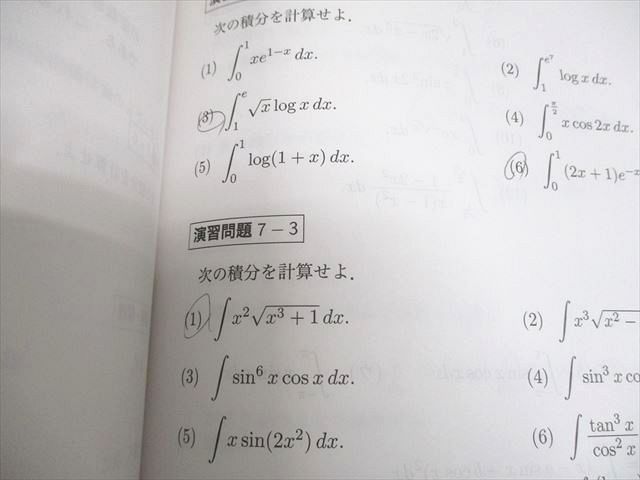 次の積分を計算せよ.
(1) ∫_0^1 xe^{1−x} dx.
(2) ∫_1^{e^7} log x dx.
(3) ∫_1^e √x log x dx.
(4) ∫_0^{π/2} x cos 2x dx.
(5) ∫_0^1 log(1 + x) dx.
(6) ∫_0^1 (2x + 1)e^{−x}
演習問題 7 − 3
次の積分を計算せよ.
(1) ∫ x^2 √(x^3 + 1) dx.
(2) ∫ x^3 √(x^2 −
(3) ∫ sin^6 x cos x dx.
(4) ∫ sin^3 x co
(5) ∫ x sin(2x^2) dx.
(6) ∫ tan^3 x / cos^2 x